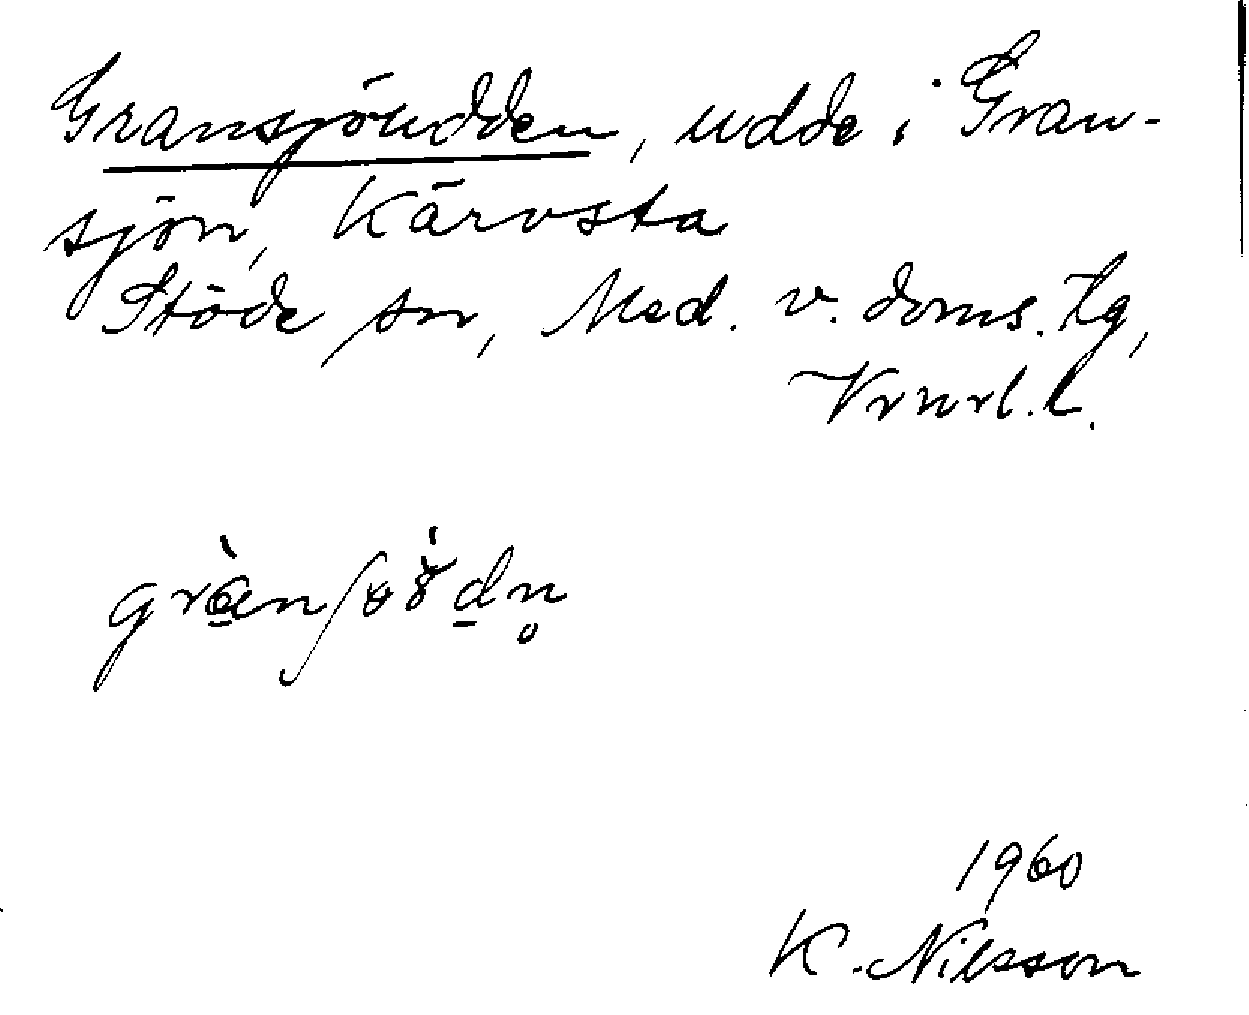 Gransjöudden, udde i Gran-
sjön, Kärvsta
Stöde sn, Med. v. doms. tg,
Vrnrl. l.
1960
K. Nilsson